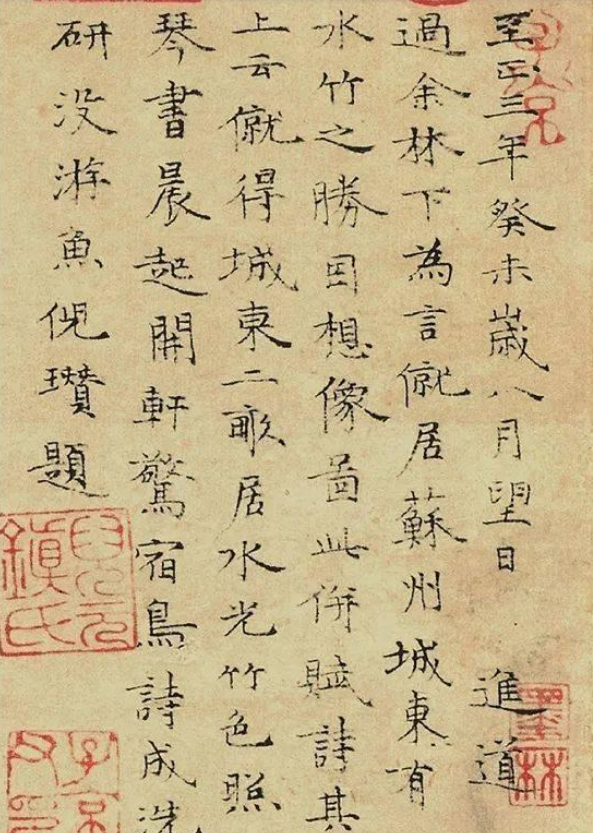 至正三年癸未歲八月望日 進道
過余林下為言僦居蘇州城東有
水竹之勝因想像啚此併賦詩其
上云僦得城東二畝居水光竹色照
琴書晨起開軒驚宿鳥詩成洗
研没游魚倪瓚題
子京
墨林
兒元
鎮氏
子京
父印